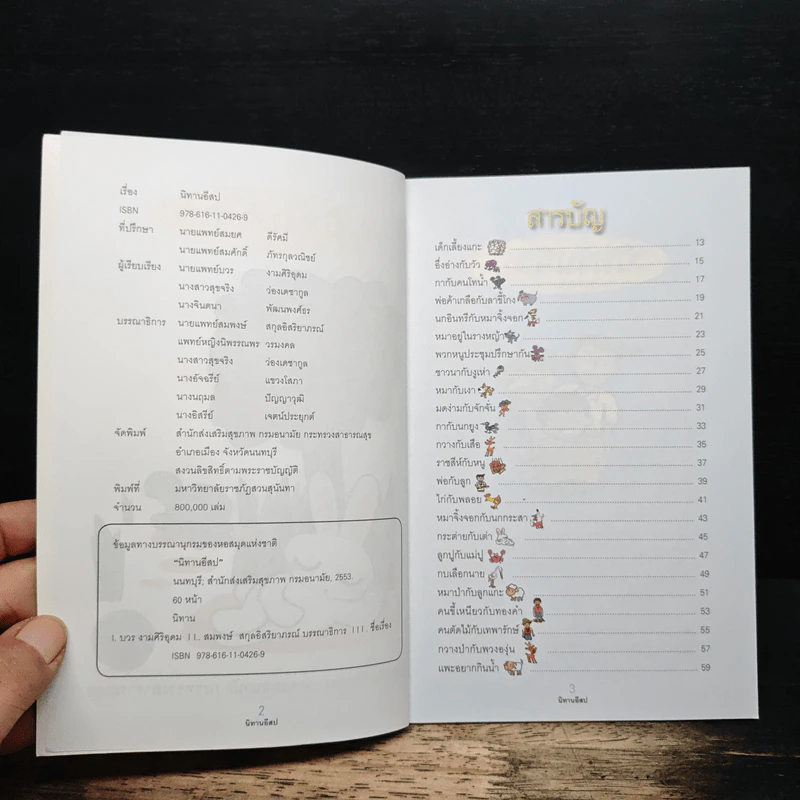 เรื่อง นิทานอีสป
ISBN 978-616-11-0426-9
ที่ปรึกษา นายแพทย์สมยศ ดีรัศมี
นายแพทย์สมศักดิ์ ภัทรกุลวณิชย์
ผู้เรียบเรียง นายแพทย์บวร งามศิริอุดม
นางสาวสุขจริง ว่องเดชากุล
นางจินตนา พัฒนพงศ์ธร
บรรณาธิการ นายแพทย์สมพงษ์ สกุลอิสริยาภรณ์
แพทย์หญิงนิพรรณพร วรมงคล
นางสาวสุขจริง ว่องเดชากุล
นางอัจฉรีย์ แขวงโสภา
นางนฤมล ปัญญาวุฒิ
นางอิสรีย์ เจตน์ประยุกต์
จัดพิมพ์ สำนักส่งเสริมสุขภาพ กรมอนามัย กระทรวงสาธารณสุข
อำเภอเมือง จังหวัดนนทบุรี
สงวนลิขสิทธิ์ตามพระราชบัญญัติ
พิมพ์ที่ มหาวิทยาลัยราชภัฏสวนสุนันทา
จำนวน 800,000 เล่ม
ข้อมูลทางบรรณานุกรมของหอสมุดแห่งชาติ
"นิทานอีสป"
นนทบุรี; สำนักส่งเสริมสุขภาพ กรมอนามัย, 2553.
60 หน้า
นิทาน
I. บวร งามศิริอุดม II.. สมพงษ์ สกุลอิสริยาภรณ์ บรรณาธิการ III. ชื่อเรื่อง
ISBN 978-616-11-0426-9
2
นิทานอีสป
สารบัญ
เด็กเลี้ยงแกะ 13
อึ่งอ่างกับวัว 15
กากับคนโทน้ำ 17
พ่อค้าเกลือกับลาขี้โกง 19
นกอินทรีกับหมาจิ้งจอก 21
หมาอยู่ในรางหญ้า 23
พวกหนูประชุมปรึกษากัน 25
ชาวนากับงูเห่า 27
หมากับเงา 29
มดง่ามกับจักจั่น 31
กากับนกยูง 33
กวางกับเสือ 35
ราชสีห์กับหนู 37
พ่อกับลูก 39
ไก่กับพลอย 41
หมาจิ้งจอกกับนกกระสา 43
กระต่ายกับเต่า 45
ลูกปูกับแม่ปู 47
กบเลือกนาย 49
หมาป่ากับลูกแกะ 51
คนขี้เหนียวกับทองคำ 53
คนตัดไม้กับเทพารักษ์ 55
กวางป่ากับพวงองุ่น 57
แพะอยากกินน้ำ 59
3
นิทานอีสป